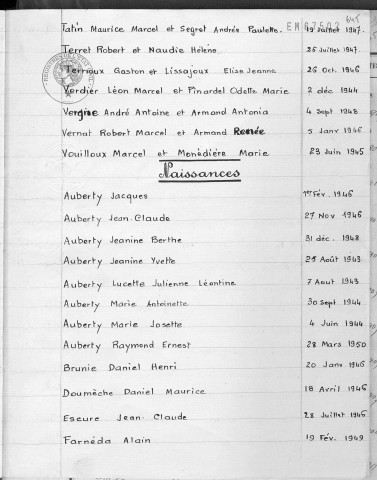 EM 67503
645
Tatin Maurice Marcel et Segret Andrée Paulette. 19 Juillet 1947.
Terret Robert et Naudie Hélène 26 Juillet 1947.
Ternoux Gaston et Lissajoux Elise Jeanne 26 Oct. 1946
Verdier Léon Marcel et Pinardel Odette Marie 2 déc 1944
Vergne André Antoine et Armand Antonia 4 Sept 1948
Vernat Robert Marcel et Armand Renée 5 Janv 1946
Vouilloux Marcel et Menèdière Marie 23 Juin 1945
Naissances
Auberty Jacques 1er Fév. 1946
Auberty Jean.Claude 27 Nov 1946
Auberty Jeanine Berthe 31 déc. 1948
Auberty Jeanine Yvette 25 Août 1943
Auberty Lucette Julienne Léontine 7 Août 1943
Auberty Marie Antoinette 30 Sept 1944
Auberty Marie Josette 4 Juin 1944
Auberty Raymond Ernest 28 Mars 1950
Brunie Daniel Henri 20 Janv 1946
Doumèche Daniel Maurice 18 Avril 1946
Escure Jean Claude 28 Juillet 1946
Farnéda Alain 19 Fév. 1949